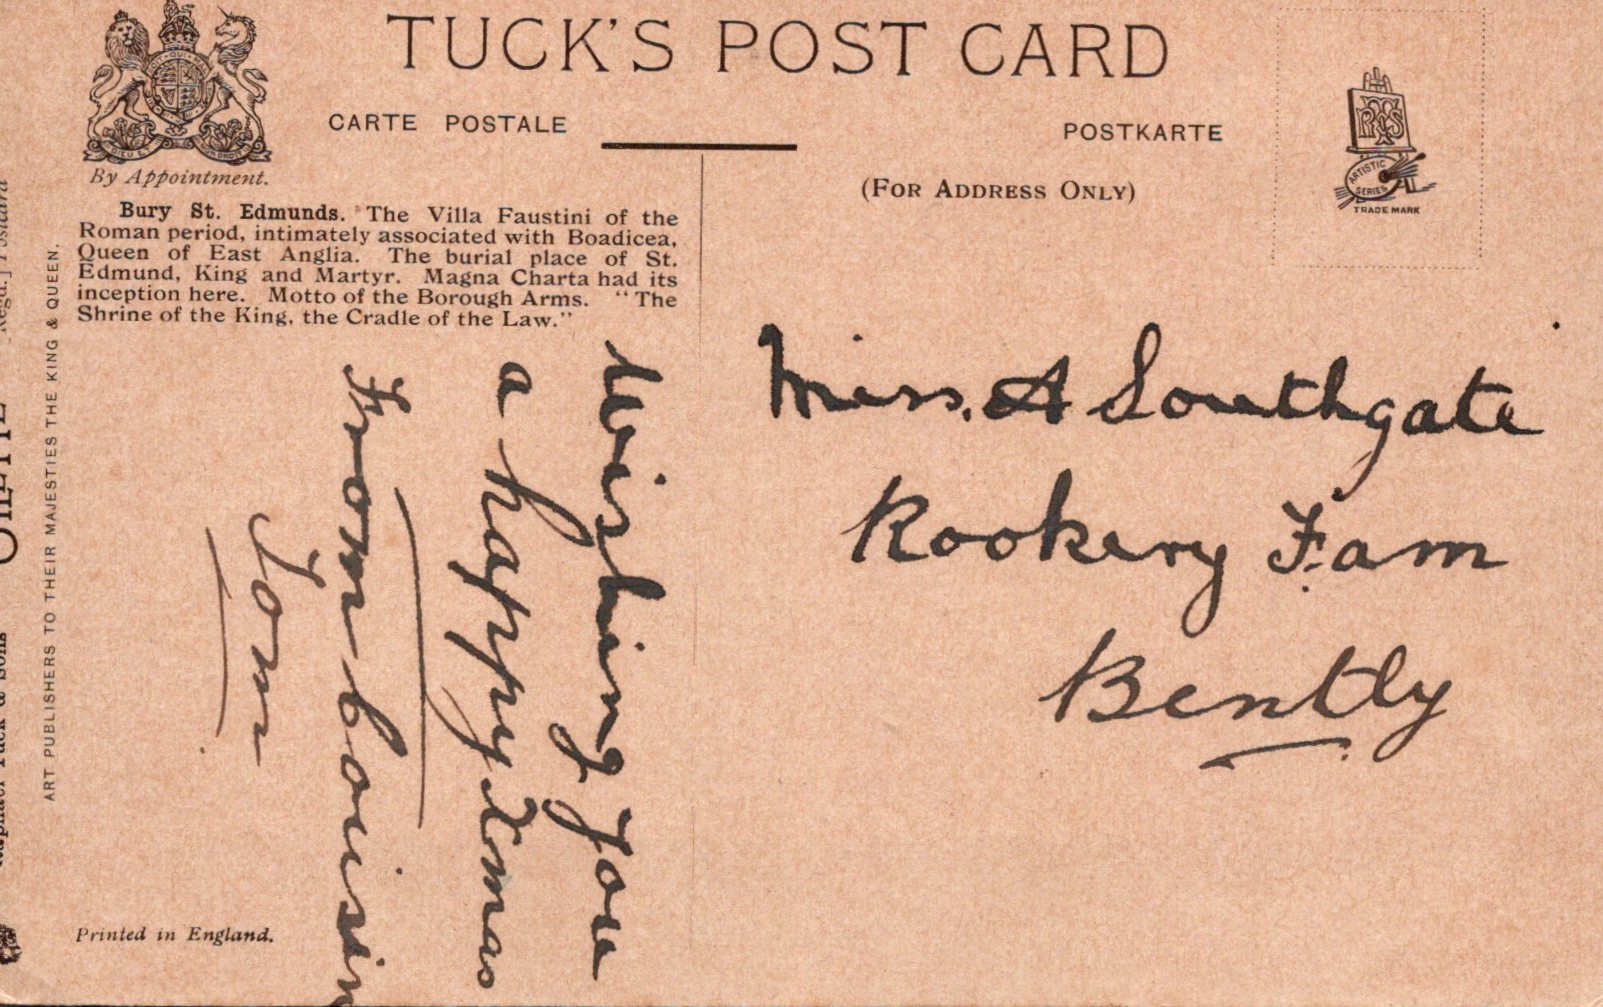 TUCK'S POST CARD
CARTE POSTALE
POSTKARTE
By Appointment.
(FOR ADDRESS ONLY)
ARTISTIC
SERIES
TRADE MARK
Bury St. Edmunds. The Villa Faustini of the
Roman period, intimately associated with Boadicea,
Queen of East Anglia. The burial place of St.
Edmund, King and Martyr. Magna Charta had its
inception here. Motto of the Borough Arms. "The
Shrine of the King, the Cradle of the Law."
Wishing you
a happy Xmas
From Cousin
Tom
Miss. A Southgate
Rookery Fam
Bently
ART PUBLISHERS TO THEIR MAJESTIES THE KING & QUEEN.
Raphael Tuck & Sons
Postcard
Printed in England.